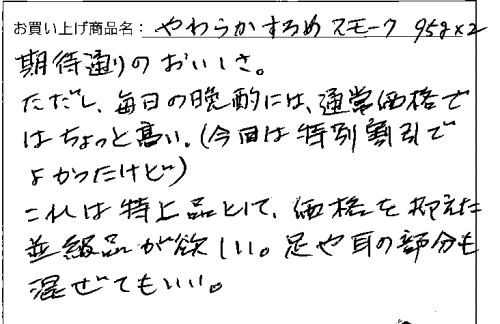 お買い上げ商品名： やわらかするめ スモーク 95g×2
期待通りのおいしさ。
ただし、毎日の晩酌には、通常価格で
はちょっと高い。(今回は特別割引で
よかったけど)
これは特上品として、価格を抑えた
並級品が欲しい。足や耳の部分も
混ぜてもいい。